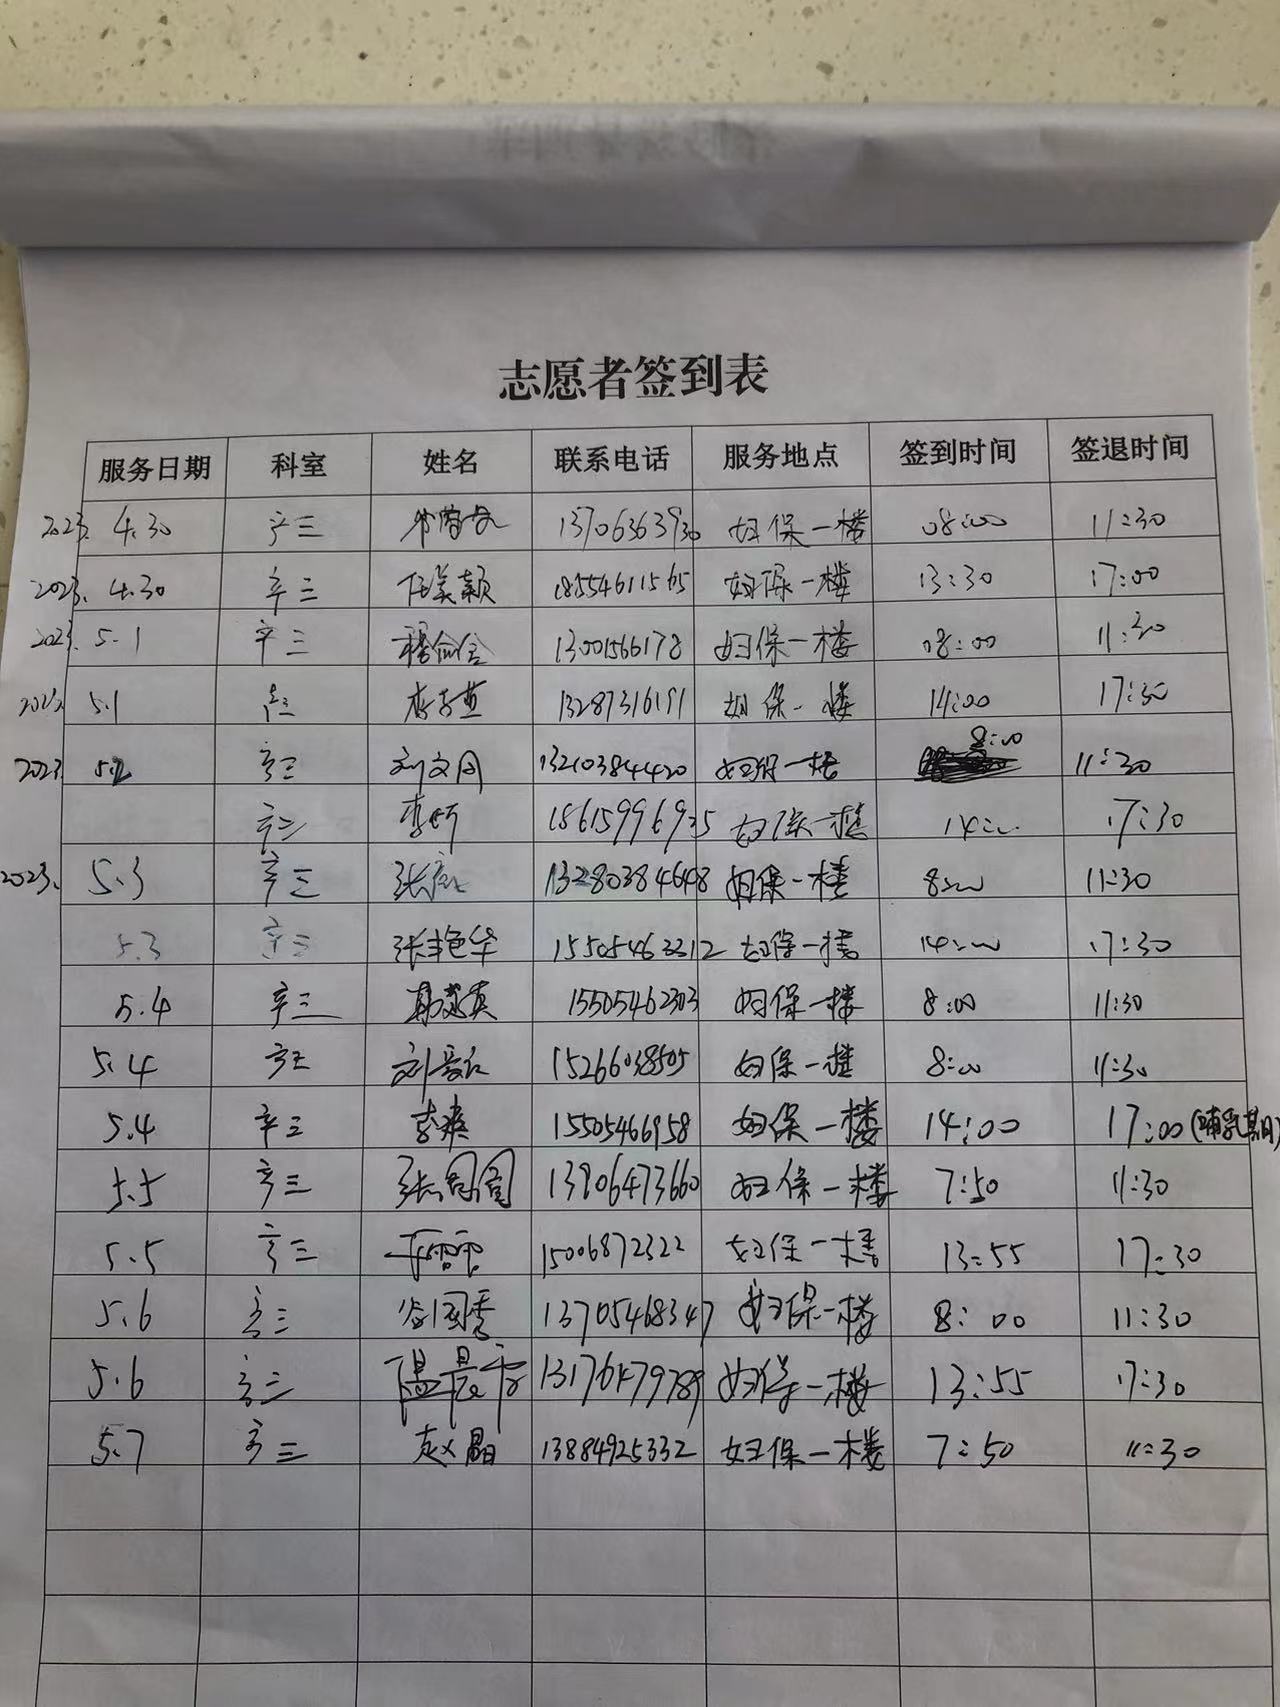 志愿者签到表
服务日期 科室 姓名 联系电话 服务地点 签到时间 签退时间
2023. 4.30 产三 13706363930 妇保一楼 08:00 11:30
2023. 4.30 产三 任美颖 18554611565 妇保一楼 13:30 17:00
2023. 5.1 产三 13001566178 妇保一楼 08:00 11:30
5.1 产三 13287316191 妇保一楼 14:00 17:30
2023 5.2 产三 刘文同 13210384420 妇保一楼 8:00 11:30
产三 李妍 18615996925 妇保一楼 14:00 17:30
2023. 5.3 产三 13280384648 妇保一楼 8:00 11:30
5.3 产三 张艳华 15505463312 妇保一楼 14:00 17:30
5.4 产三 15505462303 妇保一楼 8:00 11:30
5.4 产三 15266038505 妇保一楼 8:00 11:30
5.4 产三 李爽 15505466958 妇保一楼 14:00 17:00(哺乳期)
5.5 产三 张圆圆 13906473660 妇保一楼 7:50 11:30
5.5 产三 15006872322 妇保一楼 13:55 17:30
5.6 产三 谷国秀 13705468347 妇保一楼 8:00 11:30
5.6 产三 13176479789 妇保一楼 13:55 17:30
5.7 产三 赵晶 13884925332 妇保一楼 7:50 11:30